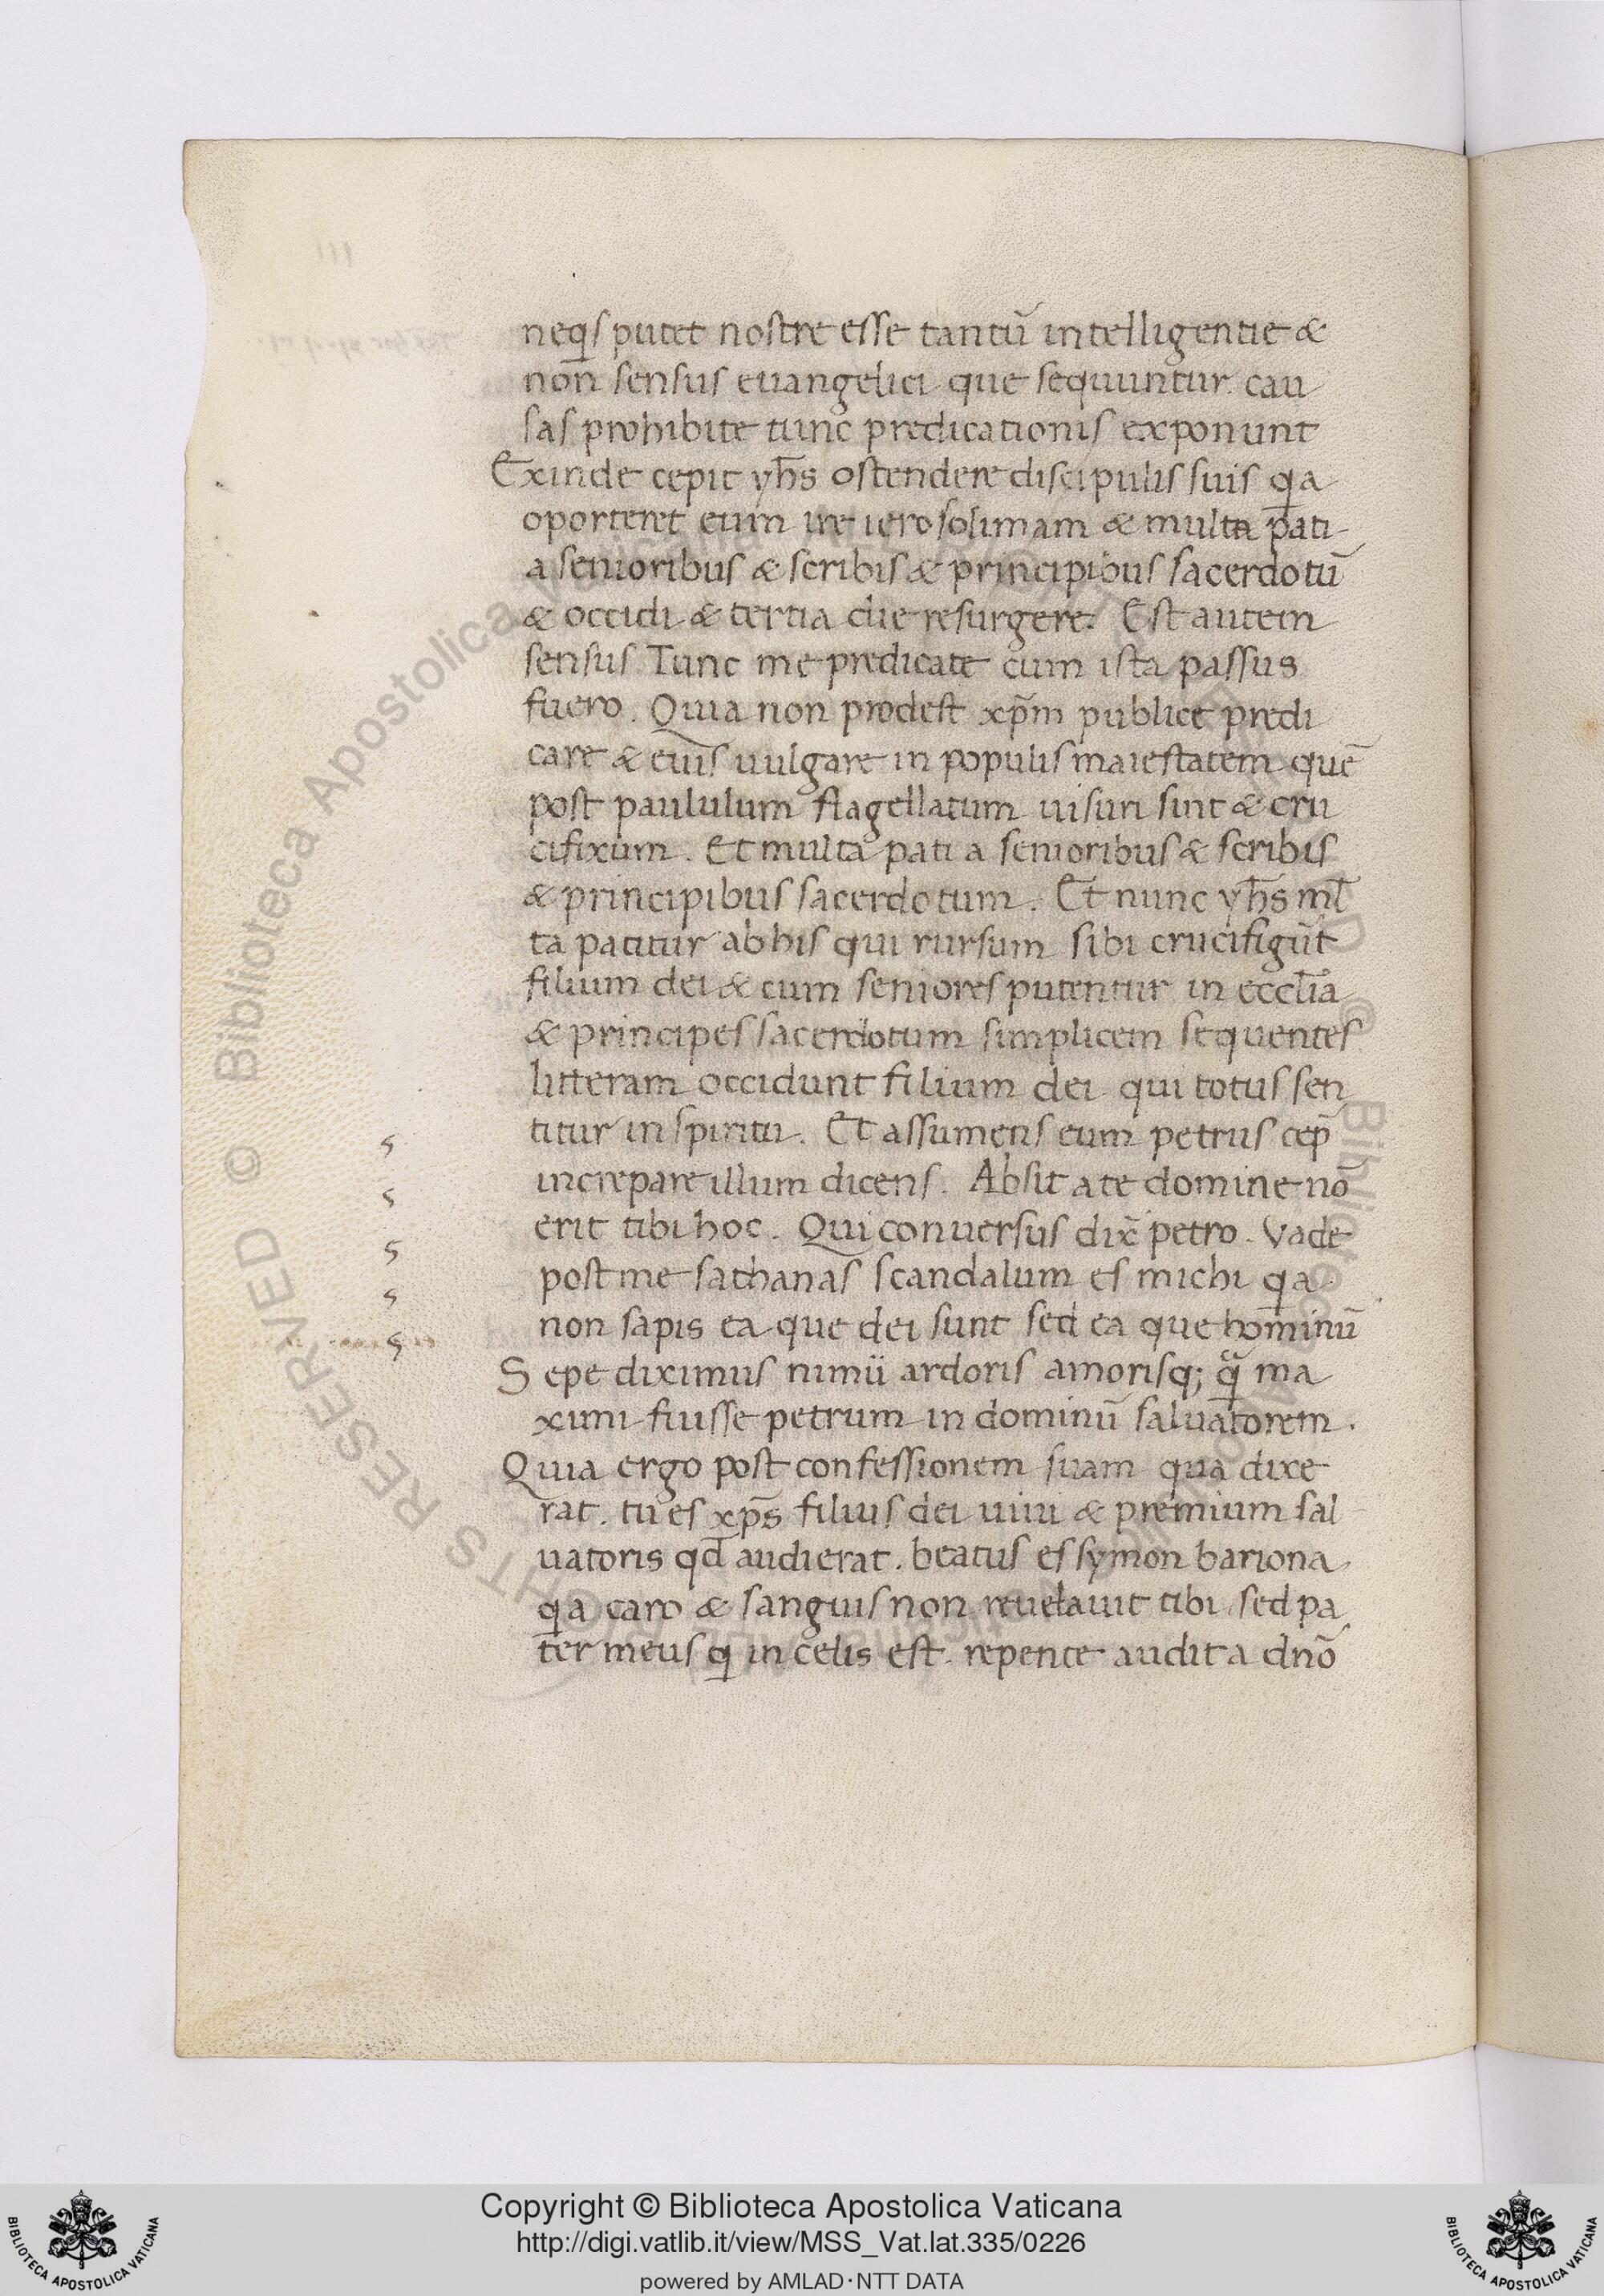 neqis putet nostre esse tantū intelligentie &
non sensus euangelici que sequuntur. cau
sas prohibite tunc predicationis exponunt
Exinde cepit yh̄s ostendere discipulis suis qa
oporteret eum ire ierosolimam & multa pati
a senioribus & scribis & principibus sacerdotū
& occidi & tertia die resurgere. Est autem
sensus. Tunc me predicate cum ista passus
fuero. Quia non prodest xp̄m publice predi
care & eius uulgare in populis maiestatem quē
post paululum flagellatum uisuri sint & cru
cifixum. Et multa pati a senioribus & scribis
& principibus sacerdotum. Et nunc yh̄s ml̄
ta patitur ab his qui rursum sibi crucifigūt
filium dei & cum seniores putentur in eccl̄ia
& principes sacerdotum simplicem sequentes
litteram occidunt filium dei qui totus sen
titur in spiritu. Et assumens eum petrus cep̄
increpare illum dicens. Absit a te domine nō
erit tibi hoc. Qui conuersus dix̄ petro. Vade
post me sathanas scandalum es michi qa
non sapis ea que dei sunt sed ea que hominū
Sepe diximus nimii ardoris amorisq; qͣ ma
ximi fuisse petrum in dominū saluatorem.
Quia ergo post confessionem suam qua dixe
rat. tu es xp̄s filius dei uiui & premium sal
uatoris qd̄ audierat. beatus es symon bariona
qa caro & sanguis non reuelauit tibi sed pa
ter meus qi in celis est. repente audit a dn̄o
Copyright © Biblioteca Apostolica Vaticana
http://digi.vatlib.it/view/MSS_Vat.lat.335/0226
powered by AMLAD·NTT DATA
BIBLIOTECA APOSTOLICA VATICANA
BIBLIOTECA APOSTOLICA VATICANA